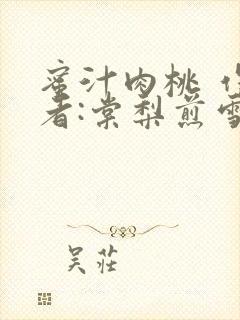 蜜汁肉桃 作
者:棠梨煎雪
吴莊